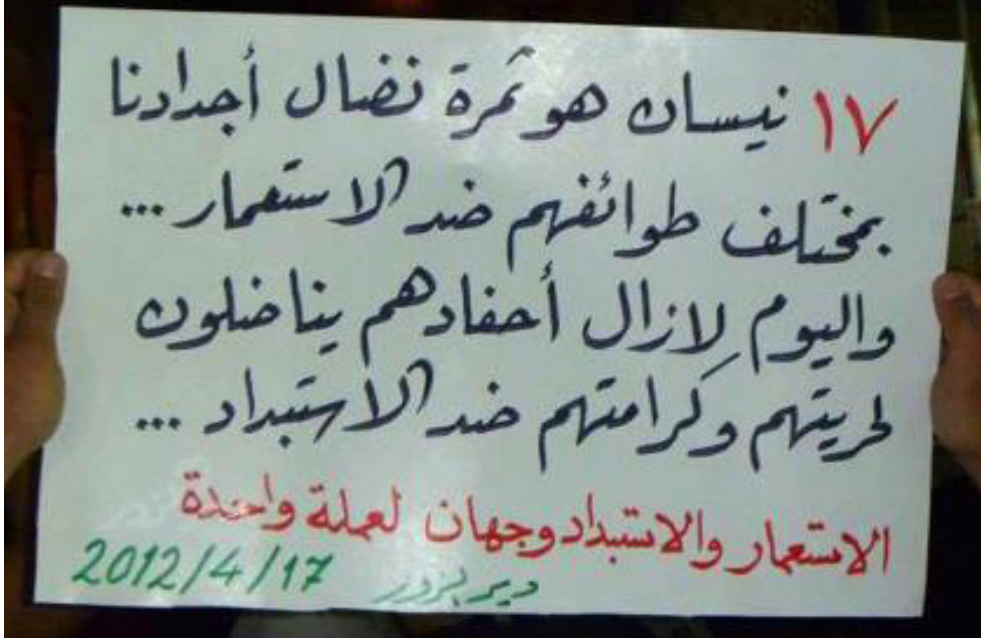 ١٧ نيسان هو ثمرة نضال أجدادنا
بمختلف طوائفهم ضد الاستعمار ...
واليوم لازال أحفادهم يناضلون
لحريتهم وكرامتهم ضد الاستبداد ...
الاستعمار والاستبداد وجهان لعملة واحدة
دير لزور 2012/4/17